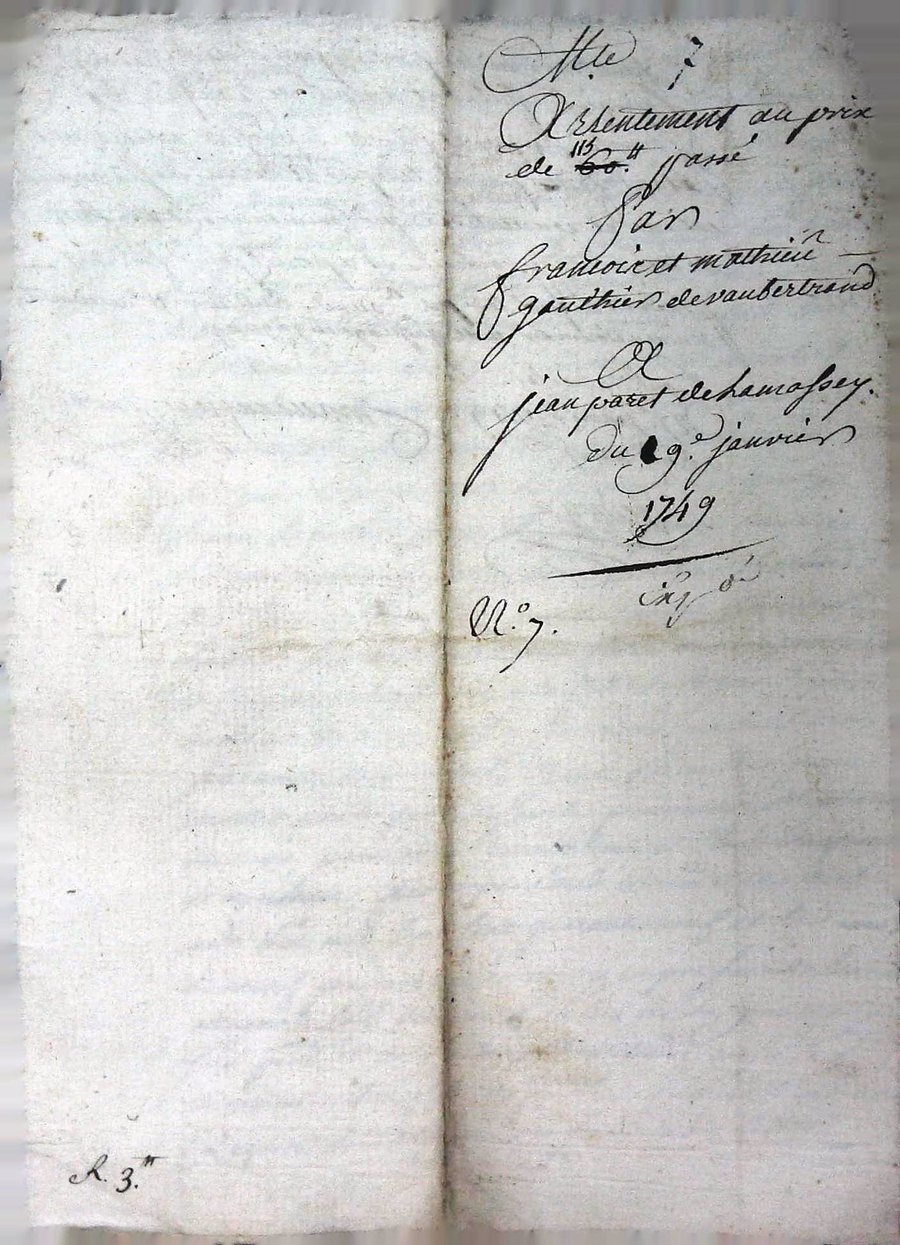 Mle 7
Arrentement au prix
de 115 60.tt passé
par
francoix et mathieu
gauthier de vaubertrand
A
jean paret de hamassey.
du 19.e janvier
1749
N.o 7.
R. 3.tt